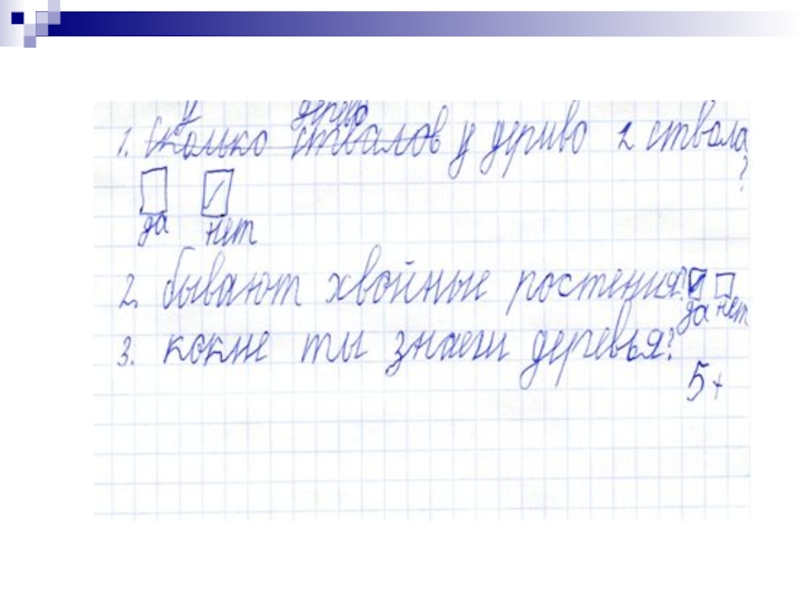 у дерево
1. Сколько стволов у дериво 2 ствола ?
да нет
2. бывают хвойные ростения? да нет
3. кокие ты знаеш деревья?
5+